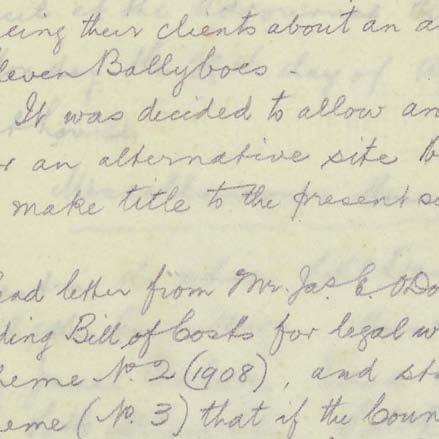 eing their clients about an a
leven Ballyboes -
It was decided to allow an
r an alternative site
make title to the present s
ead letter from Mr. Jas. E. O'Do
ding Bill of Costs for legal w
heme No. 2 (1908), and sta
eme (No. 3) that if the Coun